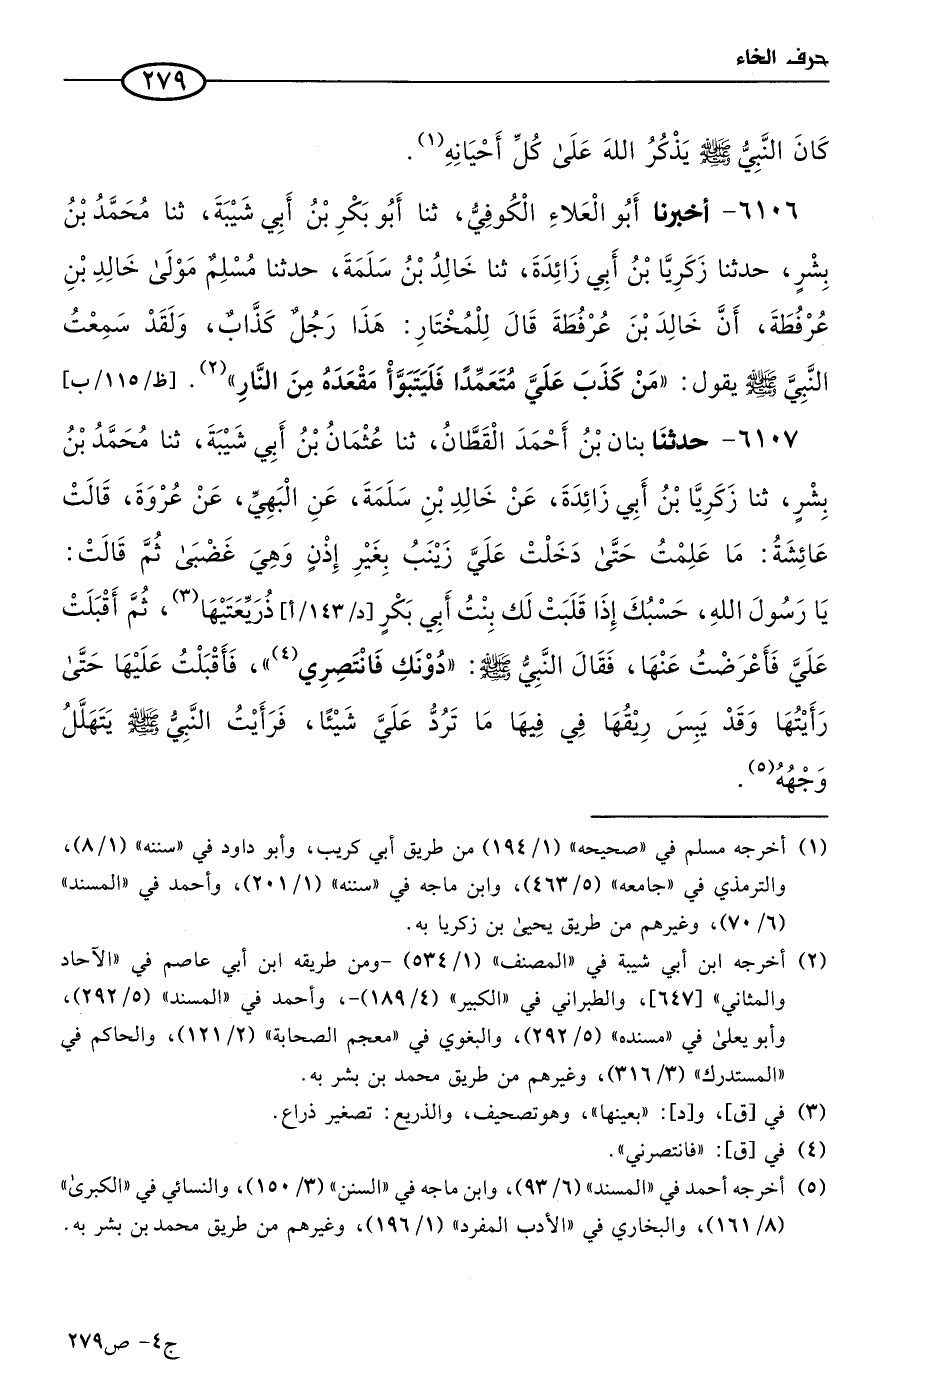 حرف الخاء
٢٧٩
كَانَ النَّبِيُّ ﷺ يَذْكُرُ اللهَ عَلَىٰ كُلِّ أَحْيَانِهِ(١).
٦١٠٦- أخبرنا أَبُو الْعَلاءِ الْكُوفِيُّ، ثنا أَبُو بَكْرِ بْنُ أَبِي شَيْبَةَ، ثنا مُحَمَّدُ بْنُ
بِشْرٍ، حدثنا زَكَرِيَّا بْنُ أَبِي زَائِدَةَ، ثنا خَالِدُ بْنُ سَلَمَةَ، حدثنا مُسْلِمٌ مَوْلَىٰ خَالِدِ بْنِ
عُرْفُطَةَ، أَنَّ خَالِدَ بْنَ عُرْفُطَةَ قَالَ لِلْمُخْتَارِ: هَذَا رَجُلٌ كَذَّابٌ، وَلَقَدْ سَمِعْتُ
النَّبِيَّ ﷺ يقول: «مَنْ كَذَبَ عَلَيَّ مُتَعَمِّدًا فَلْيَتَبَوَّأْ مَقْعَدَهُ مِنَ النَّارِ»(٢). [ظ/١١٥/ب]
٦١٠٧- حدثنَا بنان بْنُ أَحْمَدَ الْقَطَّانُ، ثنا عُثْمَانُ بْنُ أَبِي شَيْبَةَ، ثنا مُحَمَّدُ بْنُ
بِشْرٍ، ثنا زَكَرِيَّا بْنُ أَبِي زَائِدَةَ، عَنْ خَالِدِ بْنِ سَلَمَةَ، عَنِ الْبَهِيِّ، عَنْ عُرْوَةَ، قَالَتْ
عَائِشَةُ: مَا عَلِمْتُ حَتَّىٰ دَخَلْت عَلَيَّ زَيْنَبُ بِغَيْرِ إِذْنٍ وَهِيَ غَضْبَىٰ ثُمَّ قَالَتْ:
يَا رَسُولَ اللهِ، حَسْبُكَ إِذَا قَلَبَتْ لَك بِنْتُ أَبِي بَكْرٍ [د/١٤٣/أ] ذُرَيِّعَتَيْهَا(٣)، ثُمَّ أَقْبَلَتْ
عَلَيَّ فَأَعْرَضْتُ عَنْهَا، فَقَالَ النَّبِيُّ ﷺ: «دُوْنَكِ فَانْتَصِرِي(٤)»، فَأَقْبَلْتُ عَلَيْهَا حَتَّىٰ
رَأَيْتُهَا وَقَدْ يَبِسَ رِيْقُهَا فِي فِيهَا مَا تَرُدُّ عَلَيَّ شَيْئًا، فَرَأَيْتُ النَّبِيَّ ﷺ يَتَهَلَّلُ
وَجْهُهُ(٥).
(١) أخرجه مسلم في «صحيحه» (١/١٩٤) من طريق أبي كريب، وأبو داود في «سننه» (٨/١)،
والترمذي في «جامعه» (٤٦٣/٥)، وابن ماجه في «سننه» (٢٠١/١)، وأحمد في «المسند»
(٧٠/٦)، وغيرهم من طريق يحيىٰ بن زكريا به.
(٢) أخرجه ابن أبي شيبة في «المصنف» (٥٣٤/١) -ومن طريقه ابن أبي عاصم في «الآحاد
والمثاني» [٦٤٧]، والطبراني في «الكبير» (١٨٩/٤)-، وأحمد في «المسند» (٢٩٢/٥)،
وأبو يعلىٰ في «مسنده» (٢٩٢/٥)، والبغوي في «معجم الصحابة» (١٢١/٢)، والحاكم في
«المستدرك» (٣١٦/٣)، وغيرهم من طريق محمد بن بشر به.
(٣) في [ق]، و[د]: «بعينها»، وهوتصحيف، والذريع: تصغير ذراع.
(٤) في [ق]: «فانتصرني».
(٥) أخرجه أحمد في «المسند» (٩٣/٦)، وابن ماجه في «السنن» (١٥٠/٣)، والنسائي في «الكبرىٰ»
(١٦١/٨)، والبخاري في «الأدب المفرد» (١٩٦/١)، وغيرهم من طريق محمد بن بشر به.
ج٤- ص٢٧٩